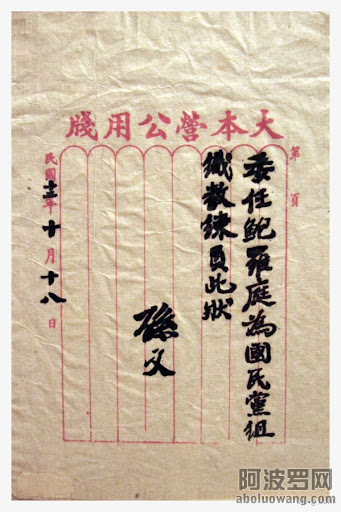 大本營公用牋
第 頁
委任鮑羅庭為國民黨組
織教練員此狀
孫文
民國十二年十月十八日
阿波罗网
aboluowang.com